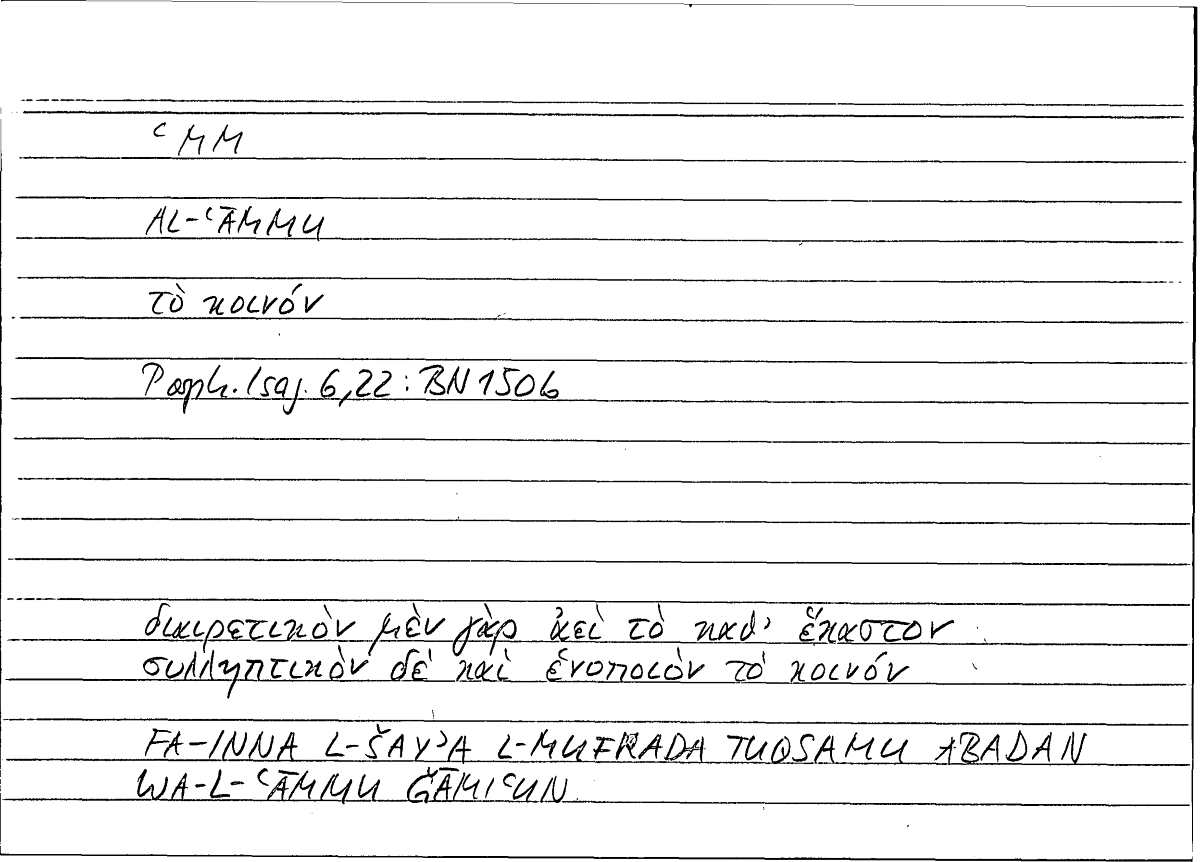 ʿMM
AL-ʿĀMMU
τὸ κοινόν
Porph. Isag. 6,22 : BN 150b
διαιρετικὸν μὲν γὰρ ἀεὶ τὸ καθ' ἕκαστον
συλληπτικὸν δὲ καὶ ἑνοποιὸν τὸ κοινόν
FA-INNA L-ŠAYʾA L-MUFRADA TUQSAMU ABADAN
WA-L-ʿĀMMU ǦĀMIʿUN